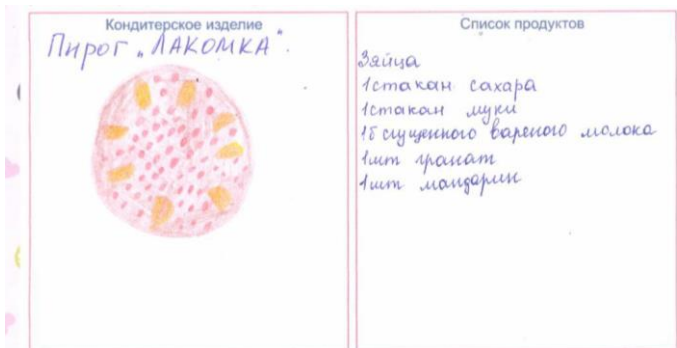 Кондитерское изделие
Пирог „ЛАКОМКА".
Список продуктов
3яйца
1стакан сахара
1стакан муки
1б сгущенного вареного молока
1шт гранат
1шт мандарин